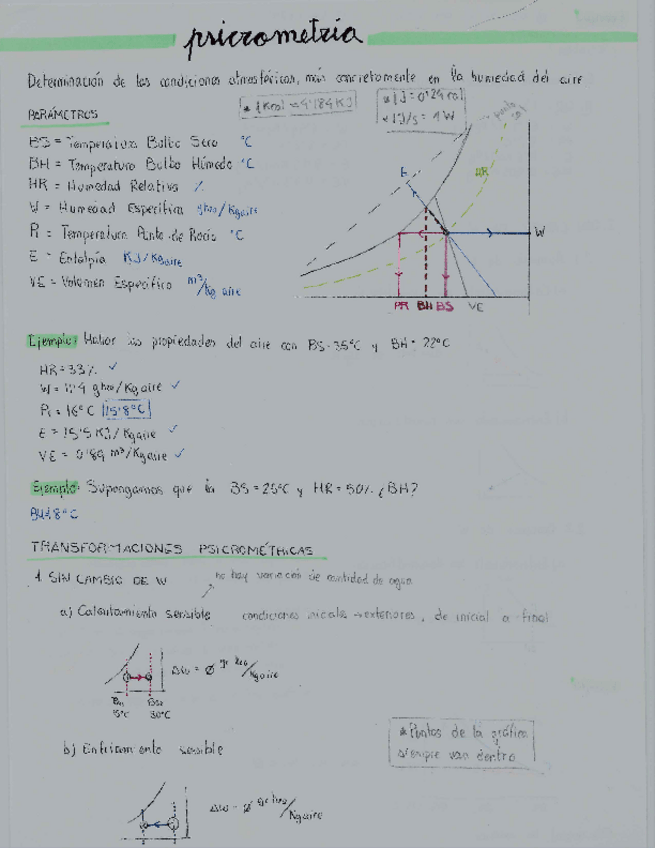 psicrometría
Determinación de las condiciones atmosféricas, más concretamente en la humedad del aire
* 1 Kcal = 4'184 KJ
* 1 J = 0'24 cal
* 1 J/s = 1 W
PARÁMETROS
BS = Temperatura Bulbo Seco °C
BH = Temperatura Bulbo Húmedo °C
HR = Humedad Relativa %
W = Humedad Específica gh2o/Kgaire
PR = Temperatura Punto de Rocío °C
E = Entalpía KJ/Kgaire
VE = Volumen Específico m³/kg aire
E
HR
W
PR BH BS VE
Ejemplo: Hallar las propiedades del aire con BS=35°C y BH=22°C
HR=33% ✓
W = 11'4 gh2o/Kgaire ✓
PR = 16°C 15'8°C
E = 15'5 KJ/Kgaire ✓
VE = 0'89 m³/Kgaire ✓
Ejemplo: Supongamos que la BS=25°C y HR=50% ¿BH?
BH 18°C
TRANSFORMACIONES PSICROMÉTRICAS
1. SIN CAMBIO DE W no hay variación de cantidad de agua
a) Calentamiento sensible condiciones iniciales → exteriores, de inicial a final
ΔW = ø gr h2o/Kgaire
15°C 30°C
b) Enfriamiento sensible
* Puntos de la gráfica
siempre van dentro
ΔW = ø gr h2o/Kgaire